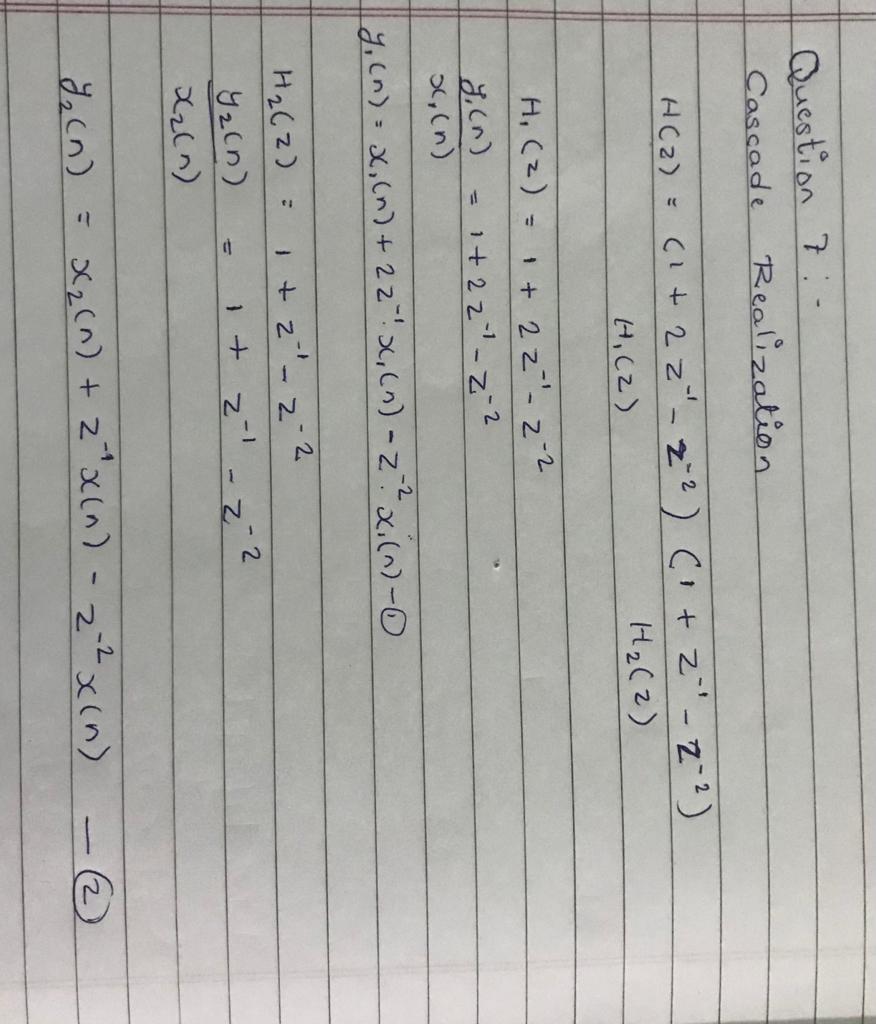 Question 7 :-
Cascade Realization
H(z) = (1 + 2z⁻¹ - z⁻²) (1 + z⁻¹ - z⁻²)
H₁(z) H₂(z)
H₁(z) = 1 + 2z⁻¹ - z⁻²
y₁(n) = 1 + 2z⁻¹ - z⁻²
x₁(n)
y₁(n) = x₁(n) + 2z⁻¹. x₁(n) - z⁻². x₁(n) - ①
H₂(z) = 1 + z⁻¹ - z⁻²
y₂(n) = 1 + z⁻¹ - z⁻²
x₂(n)
y₂(n) = x₂(n) + z⁻¹ x(n) - z⁻² x(n) — ②